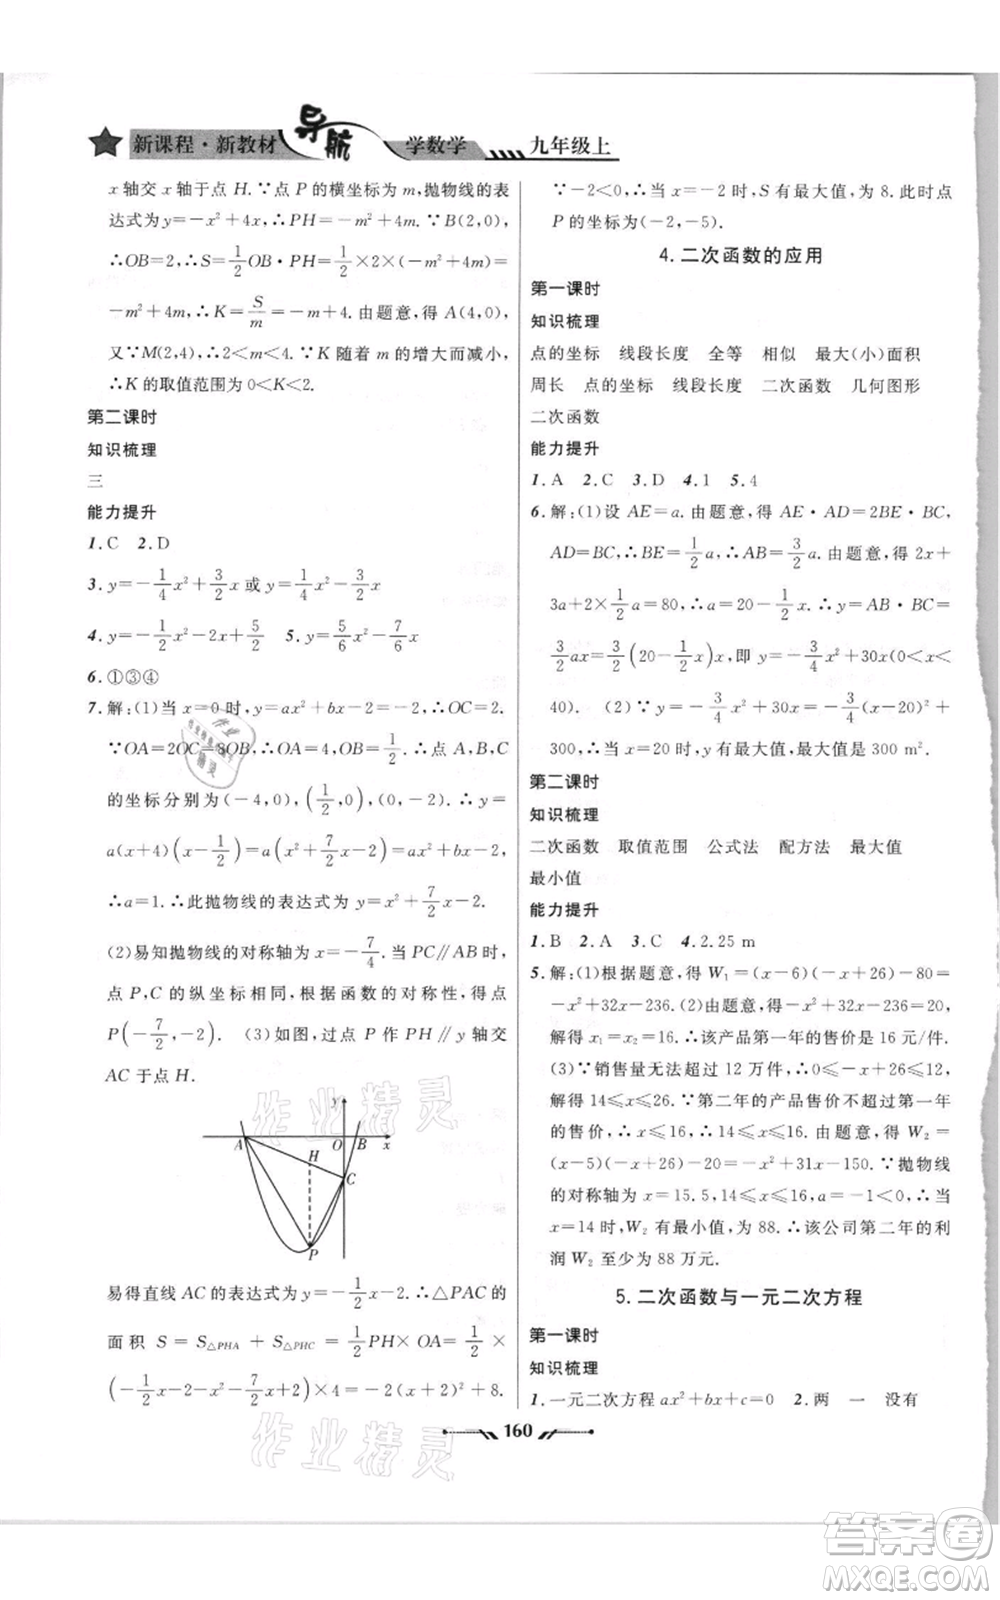 新课程·新教材 导航 学数学 九年级上
x 轴交 x 轴于点 H.∵点 P 的横坐标为 m,抛物线的表
达式为 y=-x²+4x,∴PH=-m²+4m.∵B(2,0),
∴OB=2,∴S=1/2 OB·PH=1/2×2×(-m²+4m)=
-m²+4m,∴K=S/m=-m+4.由题意,得 A(4,0),
又∵M(2,4),∴2<m<4.∵K 随着 m 的增大而减小,
∴K 的取值范围为 0<K<2.
第二课时
知识梳理
三
能力提升
1.C 2.D
3.y=-1/4 x²+3/2 x 或 y=1/4 x²+1/2 x
4.y=-1/2 x²-2x+5/2 5.y=5/6 x²-7/6 x
6.①③④
7.解:(1)当 x=0 时,y=ax²+bx-2=-2,∴OC=2.
∵OA=2OC=8OB,∴OA=4,OB=1/2.∴点 A,B,C
的坐标分别为(-4,0),(1/2,0),(0,-2).∴y=
a(x+4)(x-1/2)=a(x²+7/2 x-2)=ax²+bx-2.
∴a=1.∴此抛物线的表达式为 y=x²+7/2 x-2.
(2)易知抛物线的对称轴为 x=-7/4.当 PC∥AB 时,
点 P,C 的纵坐标相同,根据函数的对称性,得点
P(-7/2,-2). (3)如图,过点 P 作 PH∥y 轴交
AC 于点 H.
y
A O B x
H
C
P
易得直线 AC 的表达式为 y=-1/2 x-2.∴△PAC 的
面积 S=S△PHA+S△PHC=1/2 PH×OA=1/2×
(-1/2 x-2-x²-7/2 x+2)×4=-2(x+2)²+8.
∵-2<0,∴当 x=-2 时,S 有最大值,为 8.此时点
P 的坐标为(-2,-5).
4.二次函数的应用
第一课时
知识梳理
点的坐标 线段长度 全等 相似 最大(小)面积
周长 点的坐标 线段长度 二次函数 几何图形
二次函数
能力提升
1.A 2.C 3.D 4.1 5.4
6.解:(1)设 AE=a.由题意,得 AE·AD=2BE·BC,
AD=BC,∴BE=1/2 a,∴AB=3/2 a.由题意,得 2x+
3a+2×1/2 a=80,∴a=20-1/2 x.∴y=AB·BC=
3/2 ax=3/2(20-1/2 x)x,即 y=-3/4 x²+30x(0<x<
40). (2)∵y=-3/4 x²+30x=-3/4(x-20)²+
300,∴当 x=20时,y 有最大值,最大值是 300 m².
第二课时
知识梳理
二次函数 取值范围 公式法 配方法 最大值
最小值
能力提升
1.B 2.A 3.C 4.2.25 m
5.解:(1)根据题意,得 W₁=(x-6)(-x+26)-80=
-x²+32x-236.(2)由题意,得-x²+32x-236=20,
解得 x₁=x₂=16.∴该产品第一年的售价是 16 元/件.
(3)∵销售量无法超过 12 万件,∴-x+26≤12,解
得 14≤x≤26.∵第二年的产品售价不超过第一年
的售价,∴x≤16,∴14≤x≤16.由题意,得 W₂=
(x-5)(-x+26)-20=-x²+31x-150.∵抛物线
的对称轴为 x=15.5,14≤x≤16,a=-1<0,∴当
x=14时,W₂ 有最小值,为 88.∴该公司第二年的利
润 W₂ 至少为 88 万元.
5.二次函数与一元二次方程
第一课时
知识梳理
1.一元二次方程 ax²+bx+c=0 2.两 一 没有
160
作业精灵
作业精灵
答案圈
MXQE.COM